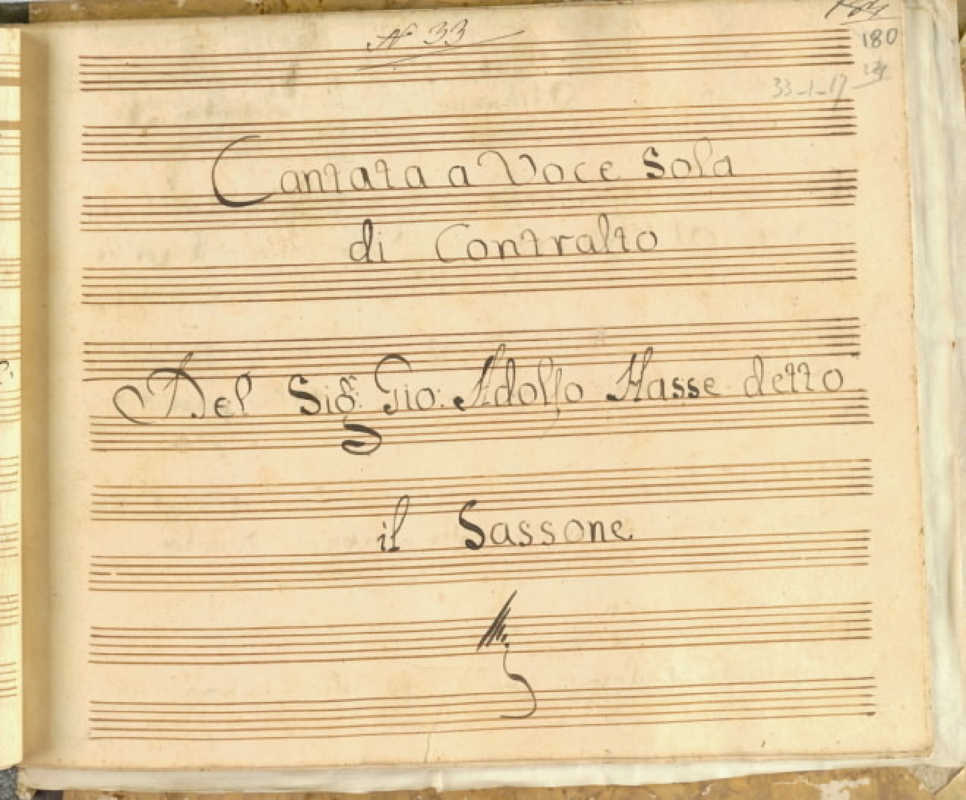 N° 33
180
24
33-1-17
Cantata a Voce Sola
di Contralto
Del Sig.r Gio: Adolfo Hasse detto
il Sassone